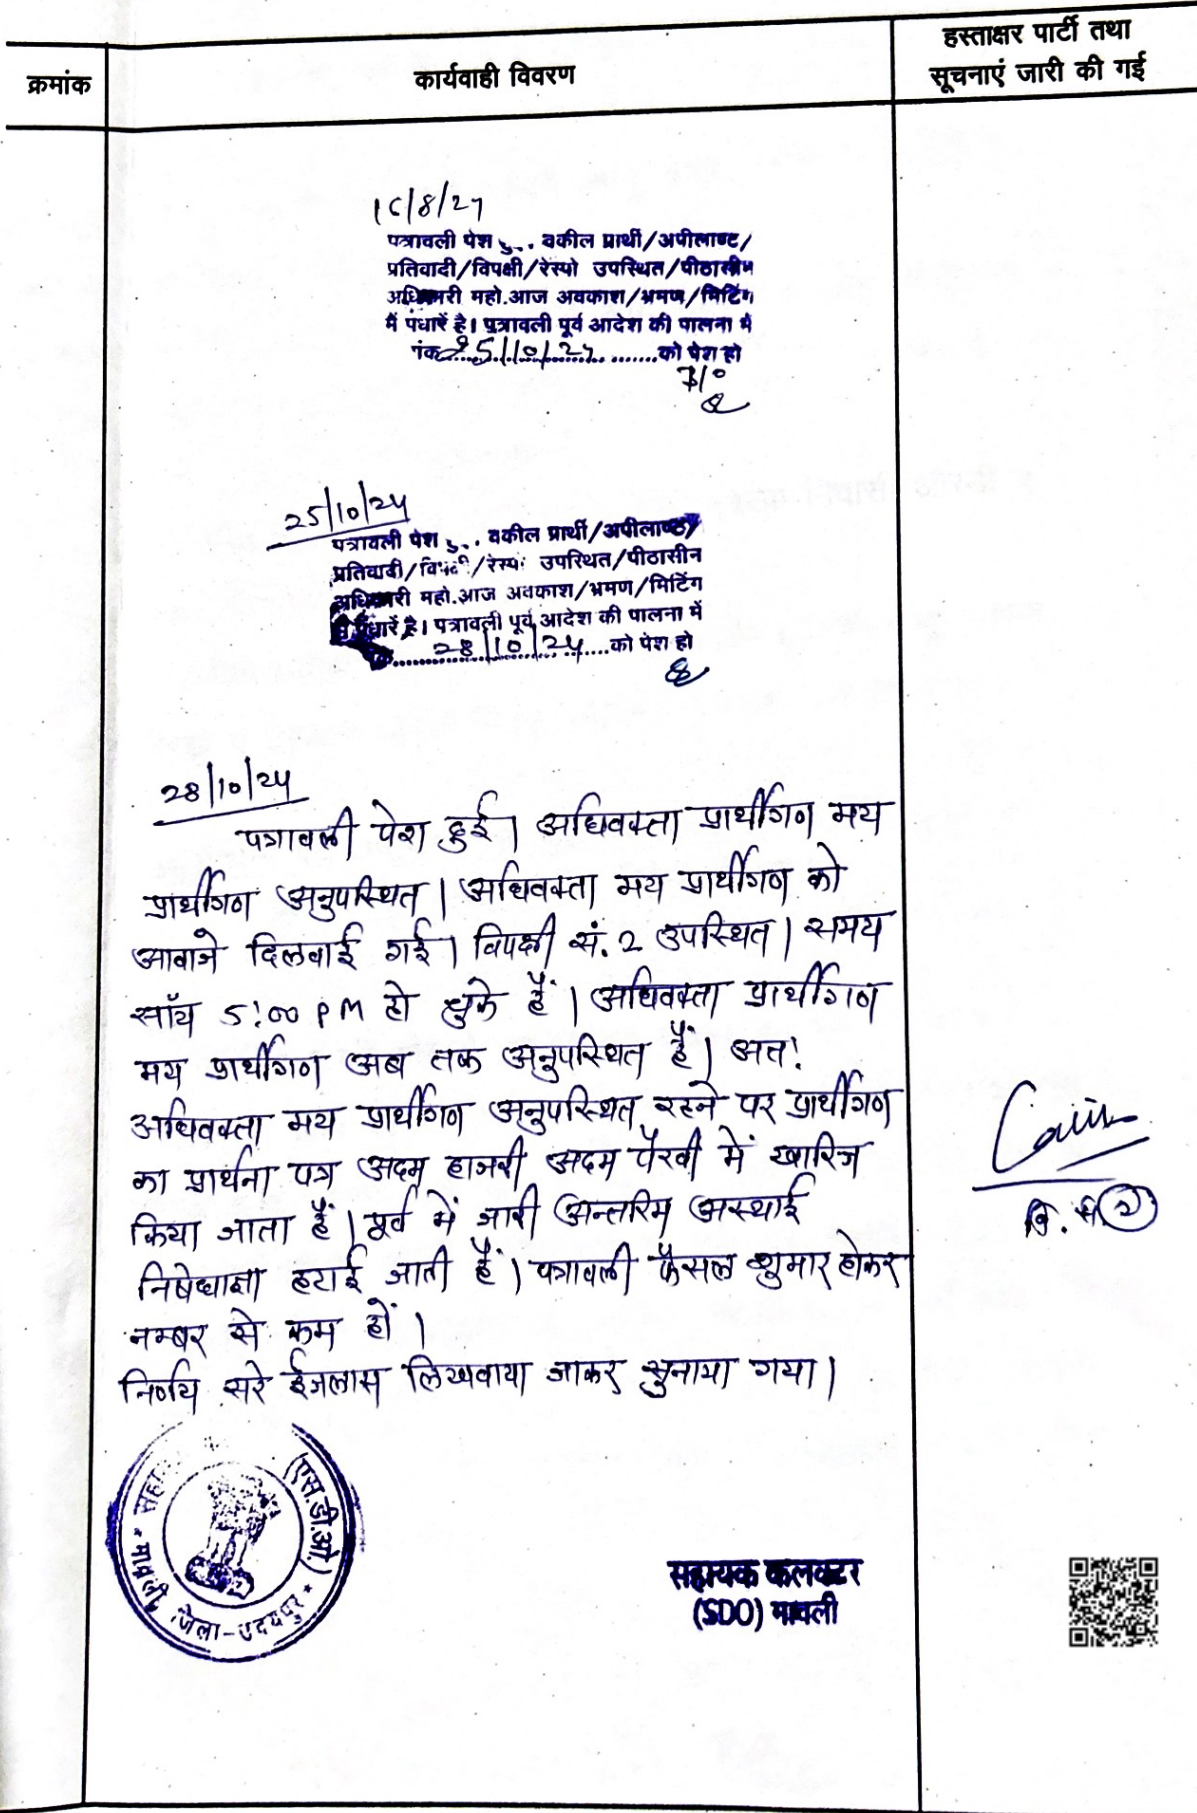 क्रमांक
कार्यवाही विवरण
हस्ताक्षर पार्टी तथा
सूचनाएं जारी की गई
पत्रावली पेश वकील प्रार्थी/अपीलाण्ट/
प्रतिवादी/विपक्षी/रेस्पो उपस्थित/पीठासीन
अधिकारी महो.आज अवकाश/भ्रमण/मिटिंग
में पधारें है। पत्रावली पूर्व आदेश की पालना में
25/10/24 को पेश हो
25/10/24
पत्रावली पेश वकील प्रार्थी/अपीलाण्ट/
प्रतिवादी/ /रेस्पो उपस्थित/पीठासीन
अधिकारी महो.आज अवकाश/भ्रमण/मिटिंग
पधारें है। पत्रावली पूर्व आदेश की पालना में
28/10/24 को पेश हो
28/10/24
पत्रावली पेश हुई। अधिवक्ता प्रार्थीगण मय
प्रार्थीगण अनुपस्थित। अधिवक्ता मय प्रार्थीगण को
आवाजे दिलवाई गई। विपक्षी सं. 2 उपस्थित। समय
सॉय 5:00 PM हो चुके हैं। अधिवक्ता प्रार्थीगण
मय प्रार्थीगण अब तक अनुपस्थित हैं। अतः
अधिवक्ता मय प्रार्थीगण अनुपस्थित रहने पर प्रार्थीगण
का प्रार्थना पत्र अदम हाजरी अदम पैरवी में खारिज
किया जाता हैं। पूर्व में जारी अन्तरिम अस्थाई
निषेधाज्ञा हटाई जाती हैं। पत्रावली फैसल शुमार होकर
नम्बर से कम हों।
निर्णय सरे ईजलास लिखवाया जाकर सुनाया गया।
वि. सं 2
एस.डी.ओ.)
मावली जिला-उदयपुर
सहायक कलक्टर
(SDO) मावली